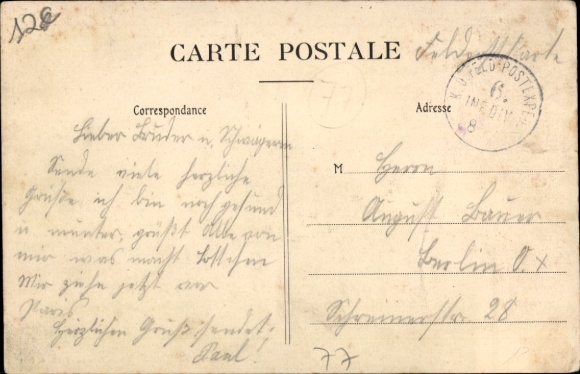 12e
CARTE POSTALE Feldpostkarte
Correspondance
Adresse
K.D. FELD-POSTEXPED.
6.
INF. DIV.
8
77
Lieber Bruder u. Schwägerin
Sende viele herzliche
Grüße, ich bin noch gesund
u munter, grüßt Alle von
mir was macht Lottchen
Wir ziehn jetzt vor
Paris!
Herzlichen Gruß sendet.
Paul!
M Herrn
August Bauer
Berlin O.
Schreinerstr. 28
77